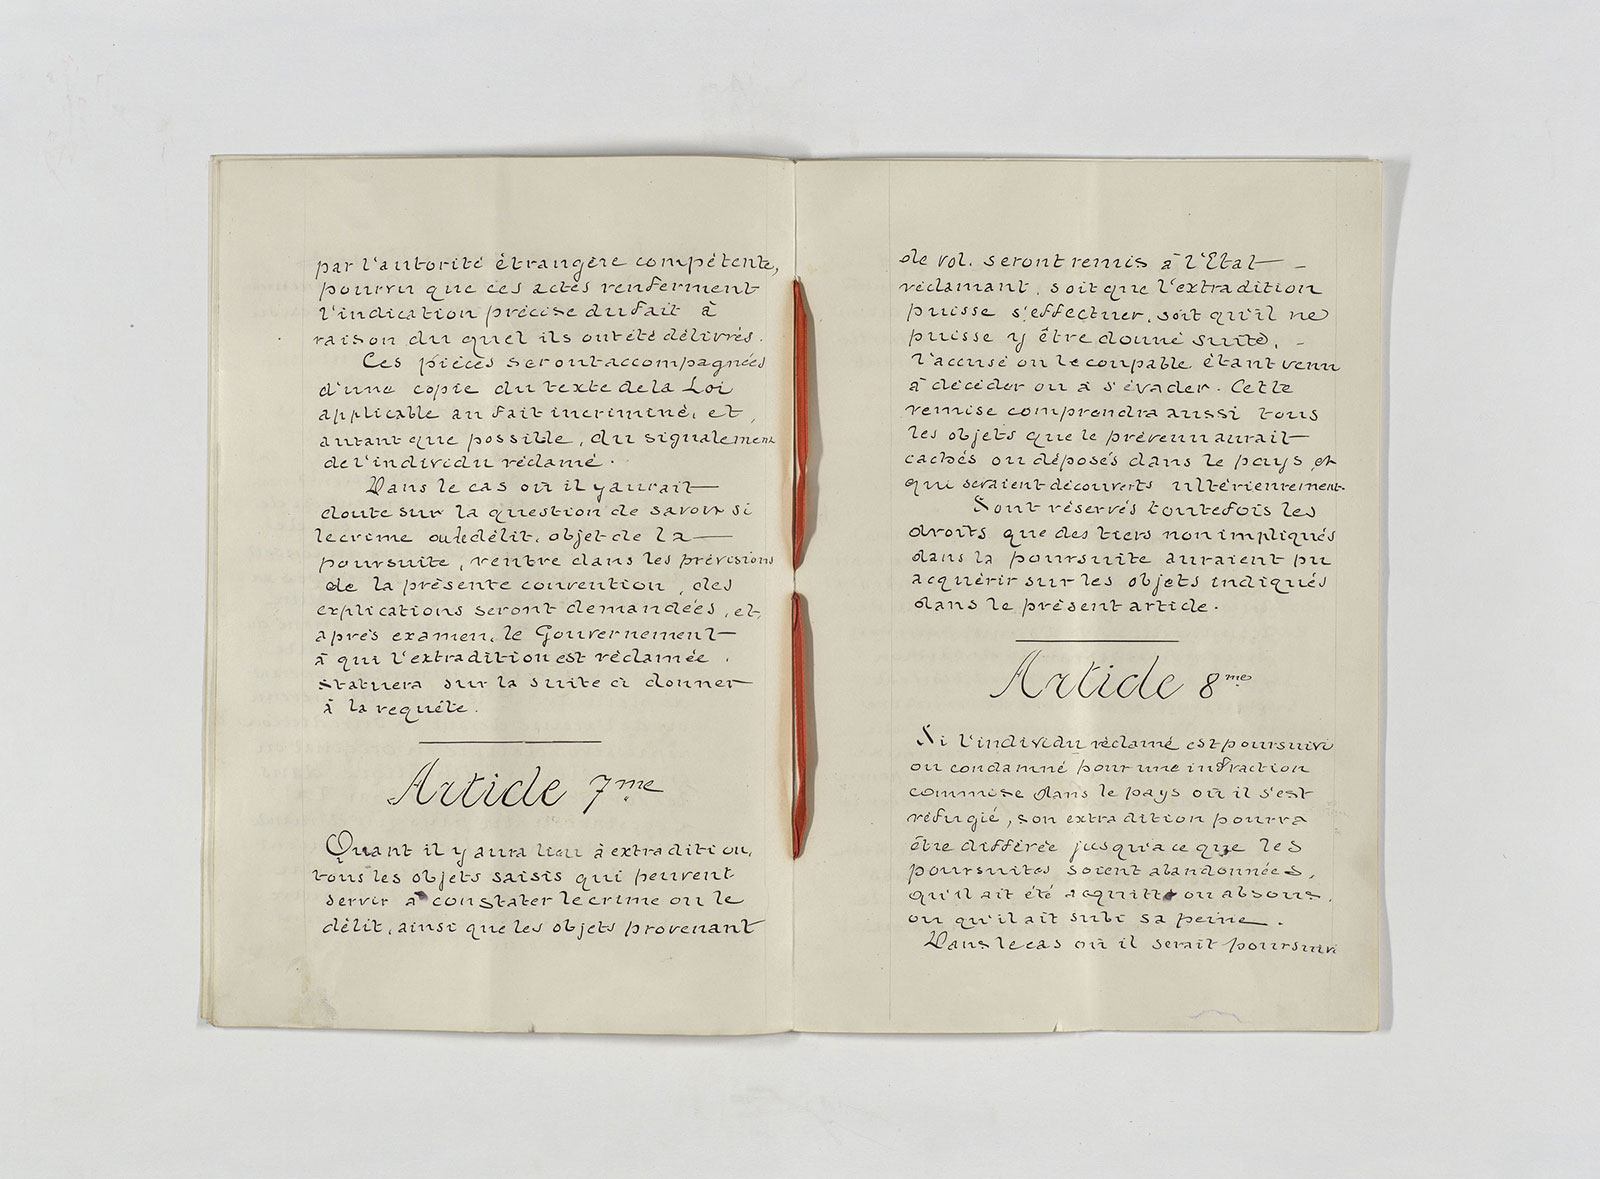 par l'autorité étrangère compétente,
pourvu que ces actes renferment
l'indication précise du fait à
raison du quel ils ont été délivrés.
Ces pièces seront accompagnées
d'une copie du texte de la Loi
applicable au fait incriminé, et,
autant que possible, du signalement
de l'individu réclamé.
Dans le cas où il y aurait
doute sur la question de savoir si
le crime ou le délit, objet de la
poursuite, rentre dans les prévisions
de la présente convention, des
explications seront demandées, et,
après examen, le Gouvernement
à qui l'extradition est réclamée,
statuera sur la suite à donner
à la requête.
Article 7me
Quant il y aura lieu à extradition,
tous les objets saisis qui peuvent
servir à constater le crime ou le
délit, ainsi que les objets provenant
de vol, seront remis à l'Etat
réclamant, soit que l'extradition
puisse s'effectuer, soit qu'il ne
puisse y être donné suite,
l'accusé ou le coupable étant venu
à décéder ou à s'évader. Cette
remise comprendra aussi tous
les objets que le prévenu aurait
cachés ou déposés dans le pays, et
qui seraient découverts ultérieurement.
Sont réservés toutefois les
droits que des tiers non impliqués
dans la poursuite auraient pu
acquérir sur les objets indiqués
dans le présent article.
Article 8me
Si l'individu réclamé est poursuivi
ou condamné pour une infraction
commise dans le pays où il s'est
réfugié, son extradition pourra
être différée jusqu'à ce que les
poursuites soient abandonnées,
qu'il ait été acquitté ou absous,
ou qu'il ait subi sa peine.
Dans le cas où il serait poursuivi